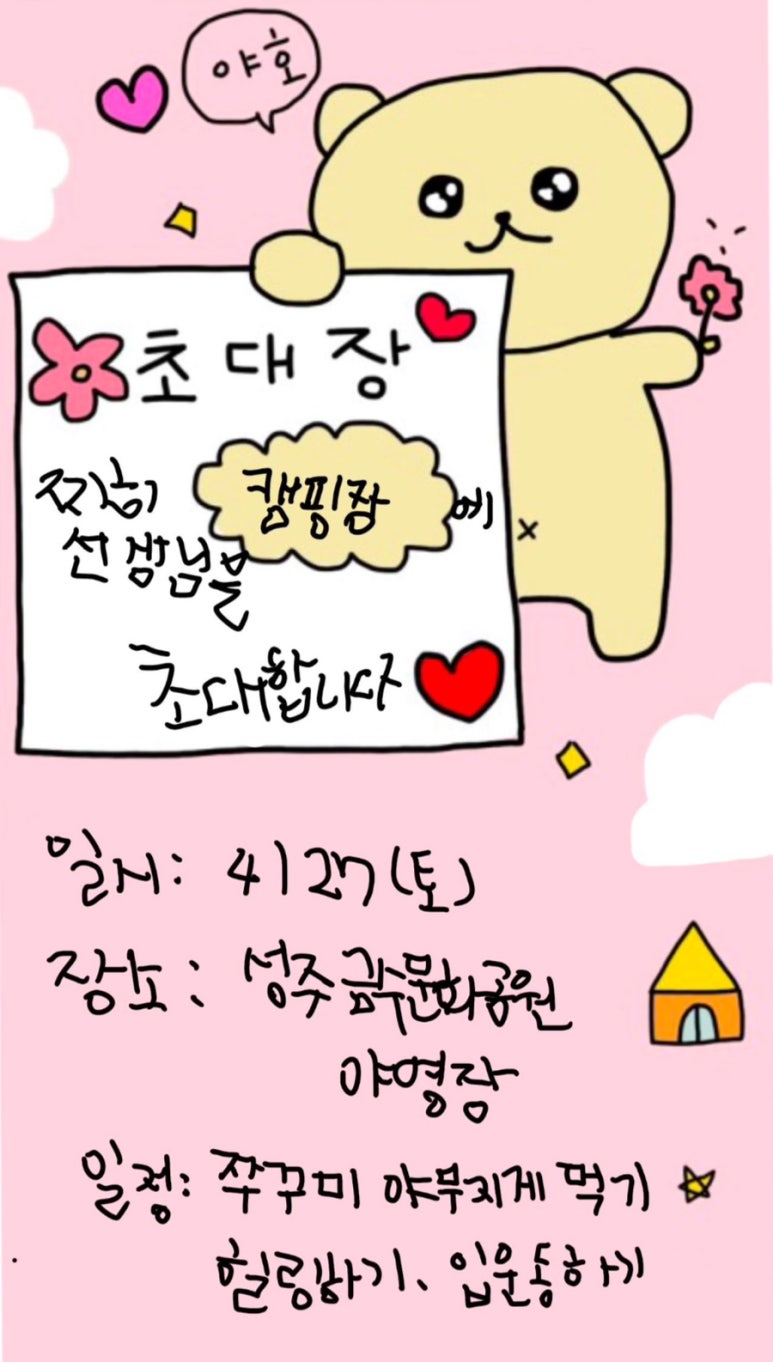 야호
초대장
캠핑장에
선장님을
초대합니다
일시: 4/27(토)
장소: 성주금수문화공원
야영장
일정: 쭈꾸미 야무지게 먹기
힐링하기、입운동하기